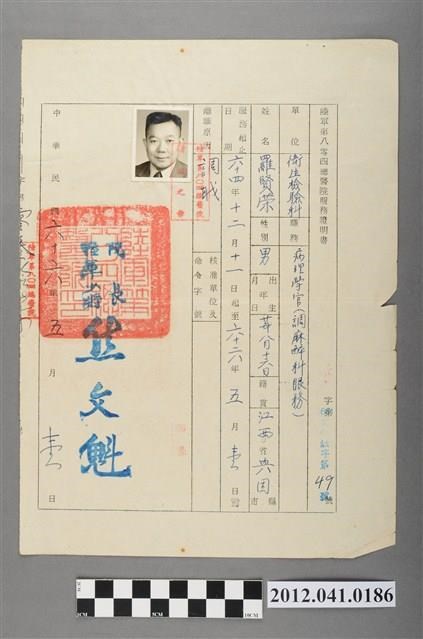 陸軍第八〇四總醫院服務證明書
字第
49號
單位 衛生檢驗科 職務 病理學官(調麻醉科服務)
姓名 羅賢榮 性別 男 出生年月日 籍貫 江西省興国縣市
服務起止日期 六十四年十二月十一日起至六十六年五月壹日
離職原因 調職 核准單位及命令字號
院長
陸軍少將 焦文魁
中華民國六十六年五月壹日
2012.041.0186